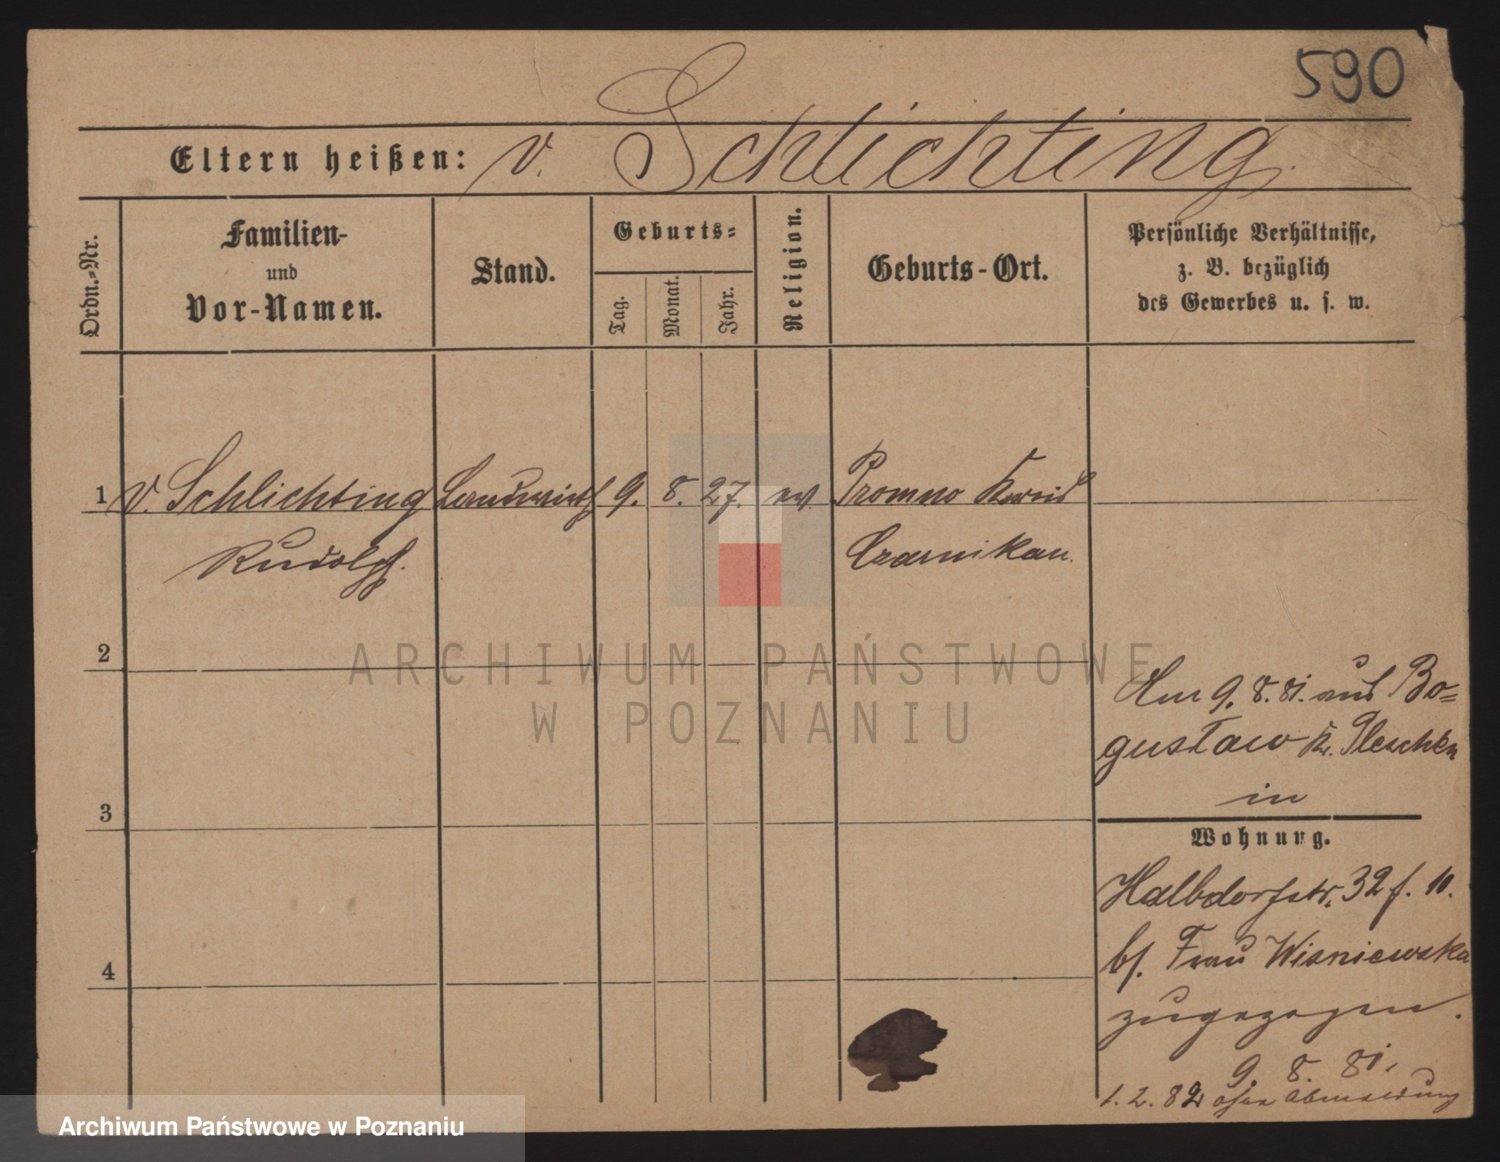 590
Eltern heißen: v. Schlichting.
Ordn.-Nr.
Familien-
und
Vor-Namen.
Stand.
Geburts-
Tag.
Monat.
Jahr.
Religion.
Geburts-Ort.
Persönliche Verhältnisse,
z. B. bezüglich
des Gewerbes u. s. w.
1 v. Schlichting Landwirth 9. 8. 27. ev. Promno Kreis
Rudolph. Czarnikau.
2
3
4
Am 9. 8. 81. aus Bo=
gustaw Kr. Pleschen
in
Wohnung.
Halbdorfstr. 32
bf. Frau Wisniewska
zugezogen.
9. 8. 81.
1. 2. 82 ohne Abmeldung
ARCHIWUM PAŃSTWOWE
W POZNANIU
Archiwum Państwowe w Poznaniu